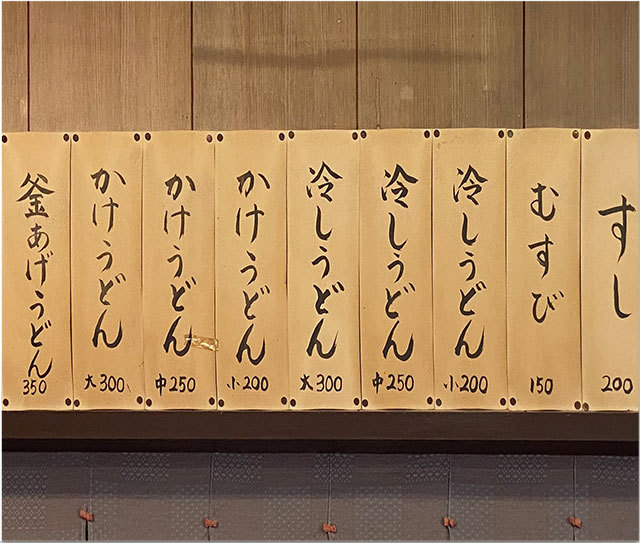 すし
200
むすび
150
冷しうどん
小200
冷しうどん
中250
冷しうどん
大300
かけうどん
小200
かけうどん
中250
かけうどん
大300
釜あげうどん
350